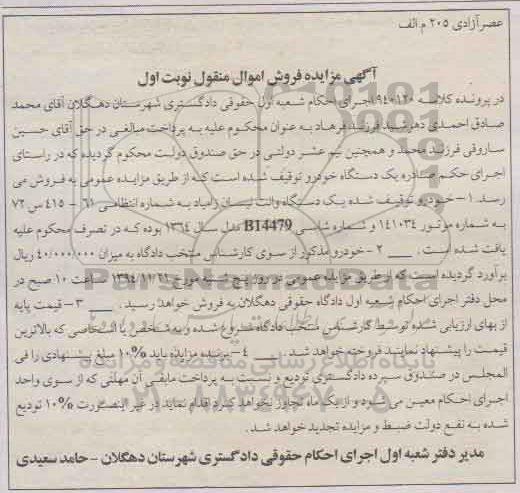 عصرآزادی ۲۰۵ م الف
آگهی مزایده فروش اموال منقول نوبت اول
در پرونده کلاسه ۹۴۰۱۲۰ اجرای احکام شعبه اول حقوقی دادگستری شهرستان دهگلان آقای محمد
صادق احمدی دهرشید فرزند فرهاد به عنوان محکوم علیه به پرداخت مبالغی در حق آقای حسین
ساروقی فرزند محمد و همچنین نیم عشر دولتی در حق صندوق دولت محکوم گردیده که در راستای
اجرای حکم صادره یک دستگاه خودرو توقیف شده است که از طریق مزایده عمومی به فروش می
رسد. ۱- خودرو توقیف شده یک دستگاه وانت نیسان زامیاد به شماره انتظامی ۶۱ - ۴۱۵ س ۷۲
به شماره موتور ۱۴۱۰۳۴ و شماره شاسی B14479 مدل سال ۱۳۶۴ بوده که در تصرف محکوم علیه
یافت شده است. __ ۲- خودرو مذکور از سوی کارشناس منتخب دادگاه به میزان ۴۰/۰۰۰/۰۰۰ ریال
برآورد گردیده است که از طریق مزایده عمومی در روز پنج شنبه مورخ ۱۳۹۴/۱۱/۲۹ ساعت ۱۰ صبح در
محل دفتر اجرای احکام شعبه اول دادگاه حقوقی دهگلان به فروش خواهد رسید. __ ۳- قیمت پایه
از بهای ارزیابی شده توسط کارشناس منتخب دادگاه شروع شده و به شخص یا اشخاصی که بالاترین
قیمت را پیشنهاد نمایند فروخته خواهد شد. __ ۴- برنده مزایده باید ۱۰% مبلغ پیشنهادی را فی
المجلس در صندوق سپرده دادگستری تودیع و نسبت به پرداخت مابقی آن مهلتی که از سوی واحد
اجرای احکام معین می شود و از یک ماه تجاوز نخواهد کرد اقدام نماید در غیر اینصورت ۱۰% تودیع
شده به نفع دولت ضبط و مزایده تجدید خواهد شد.
مدیر دفتر شعبه اول اجرای احکام حقوقی دادگستری شهرستان دهگلان - حامد سعیدی